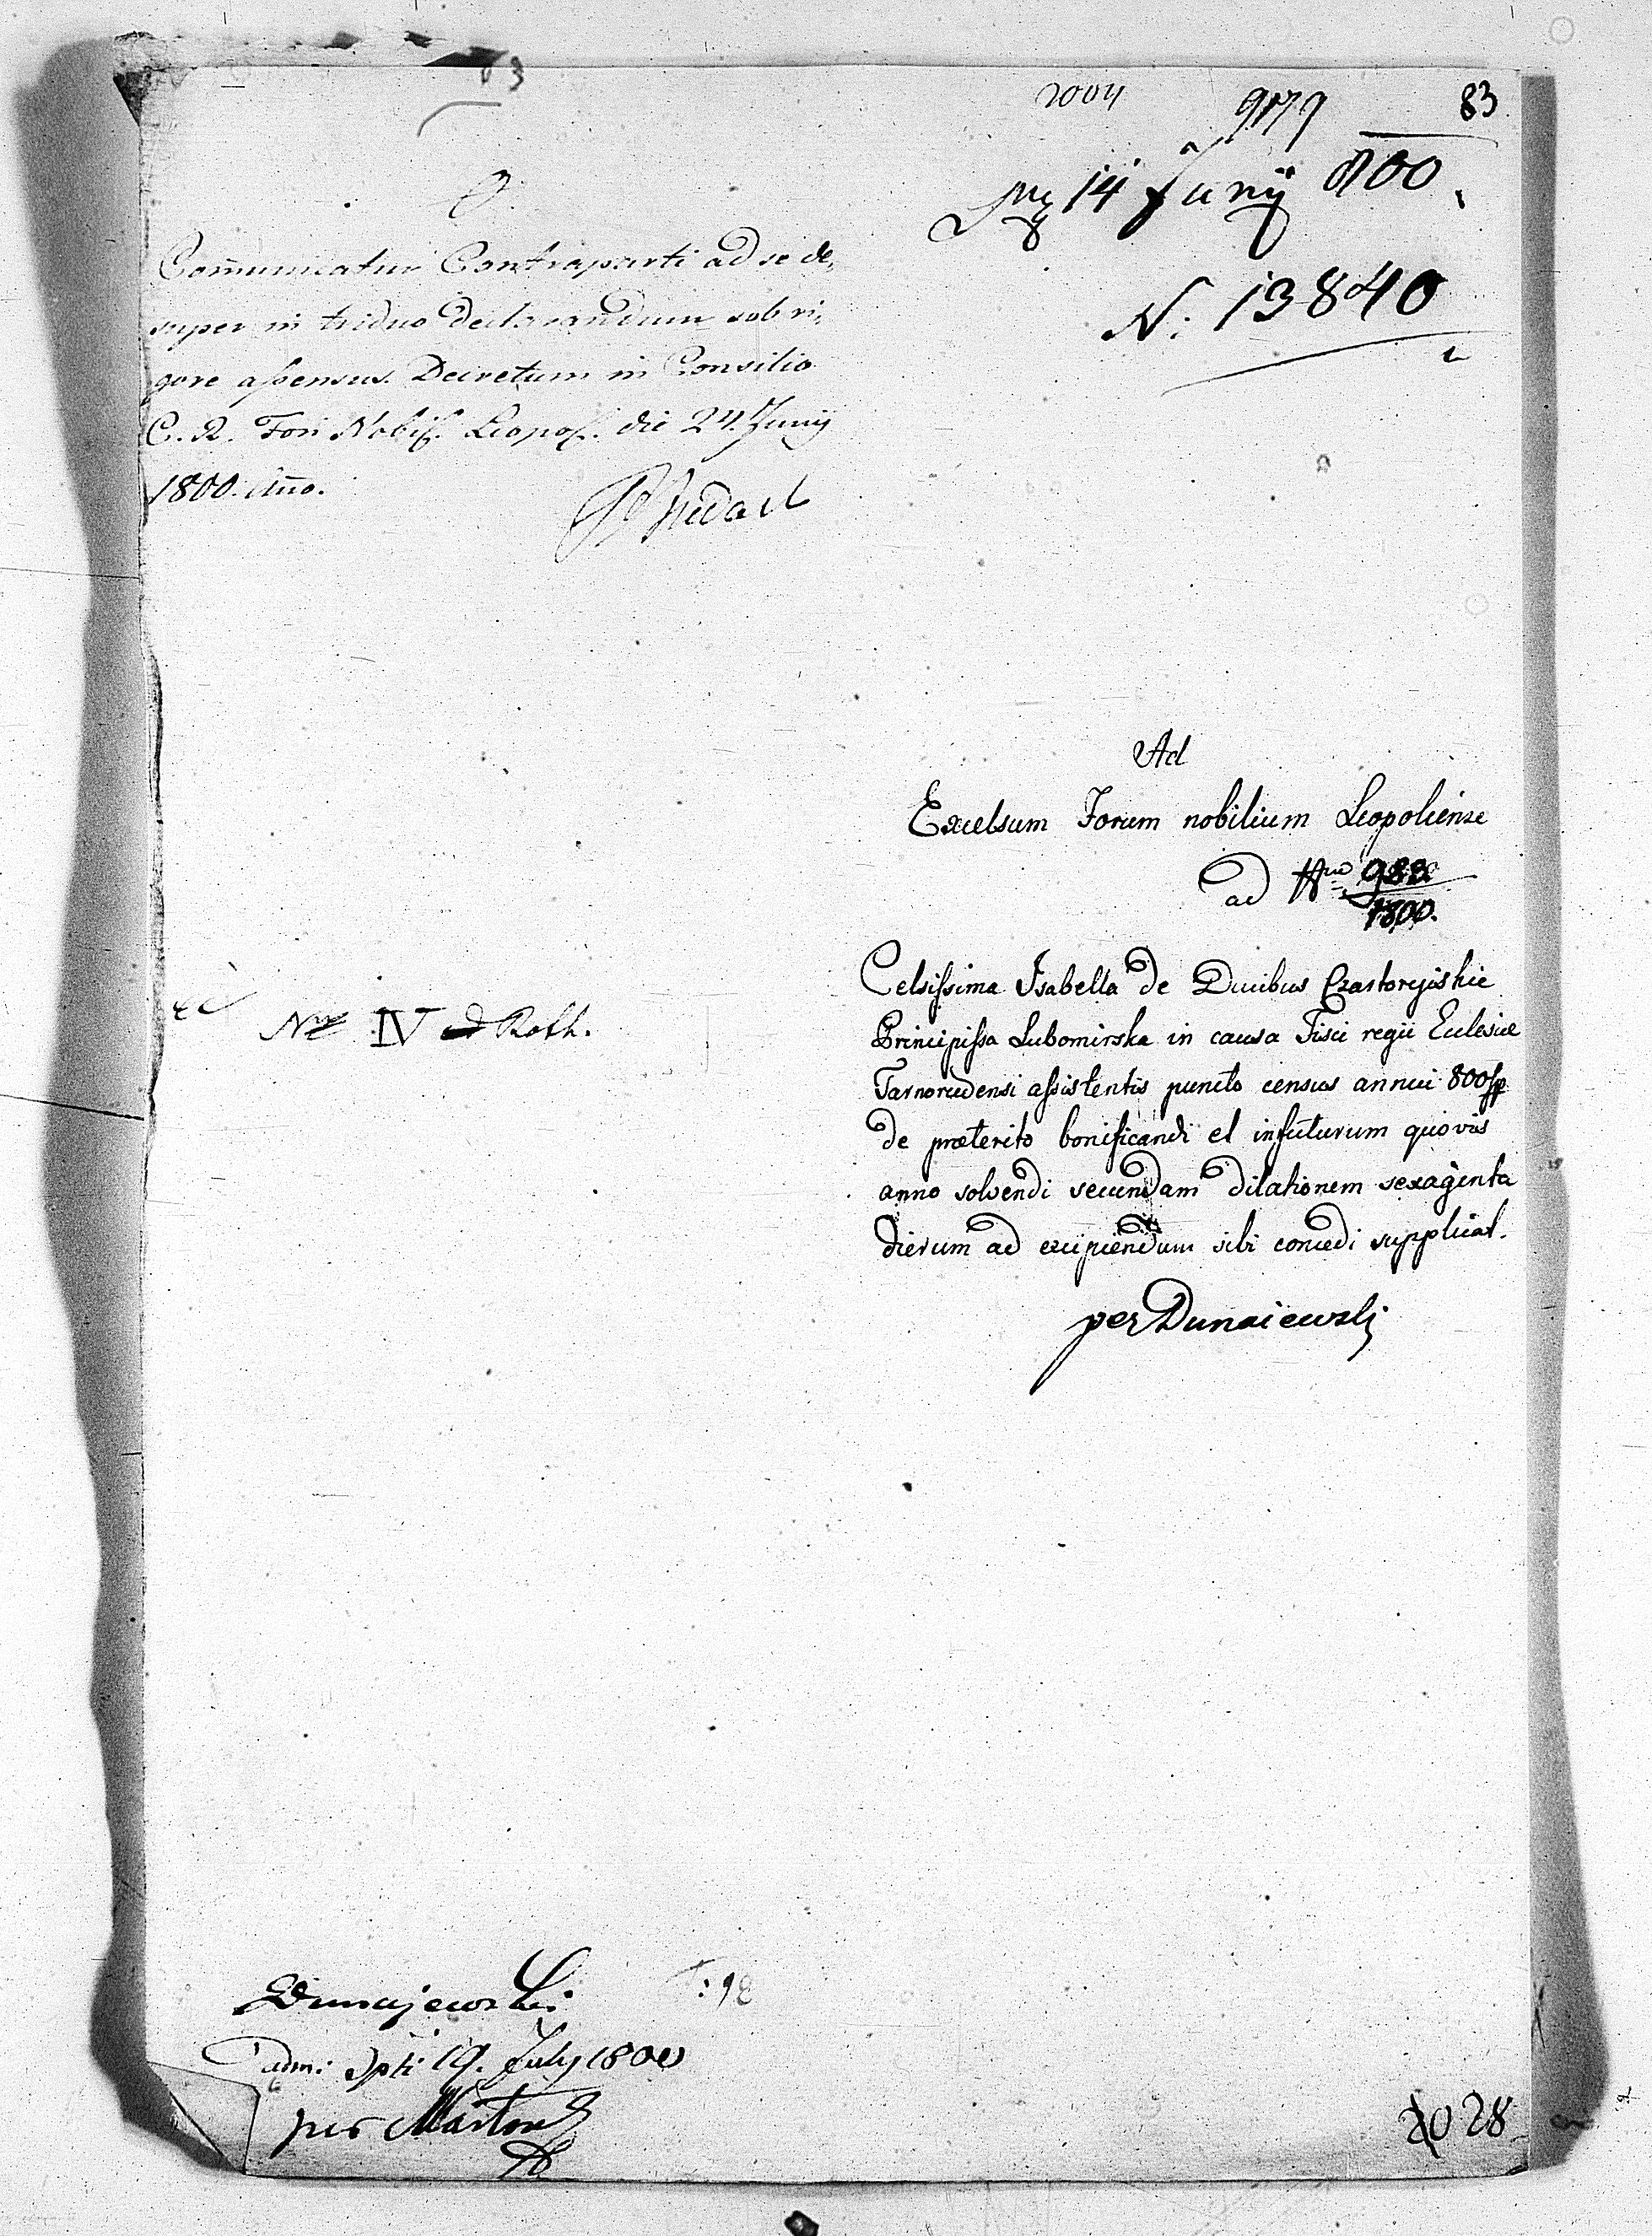 2004
9179
83
14 Junÿ 800
N: 13840
Com̄unicatur Contraparti ad se de,
super in triduo declarandum sub ri,
gore assensus. Decretum in Consilio
C. R. Fori Nobil. Leopol. die 24. Junÿ
1800. Año.
Ad
Excelsum Forum nobilium Leopoliense
ad Nrum 982
1800.
Celsissima Isabella de Ducibus Czartoryiskie
Principissa Lubomirska in causa Fisci regii Eclesiae
Tarnorudensi assistentis puncto census annui 800
de præterito bonificandi et infuturum quovis
anno solvendi secundam dilationem sexaginta
dierum ad excipiendum sibi concedi supplicat.
per Dunaiewski
IV Roth.
Dunajewski
19. July 1800
per
28